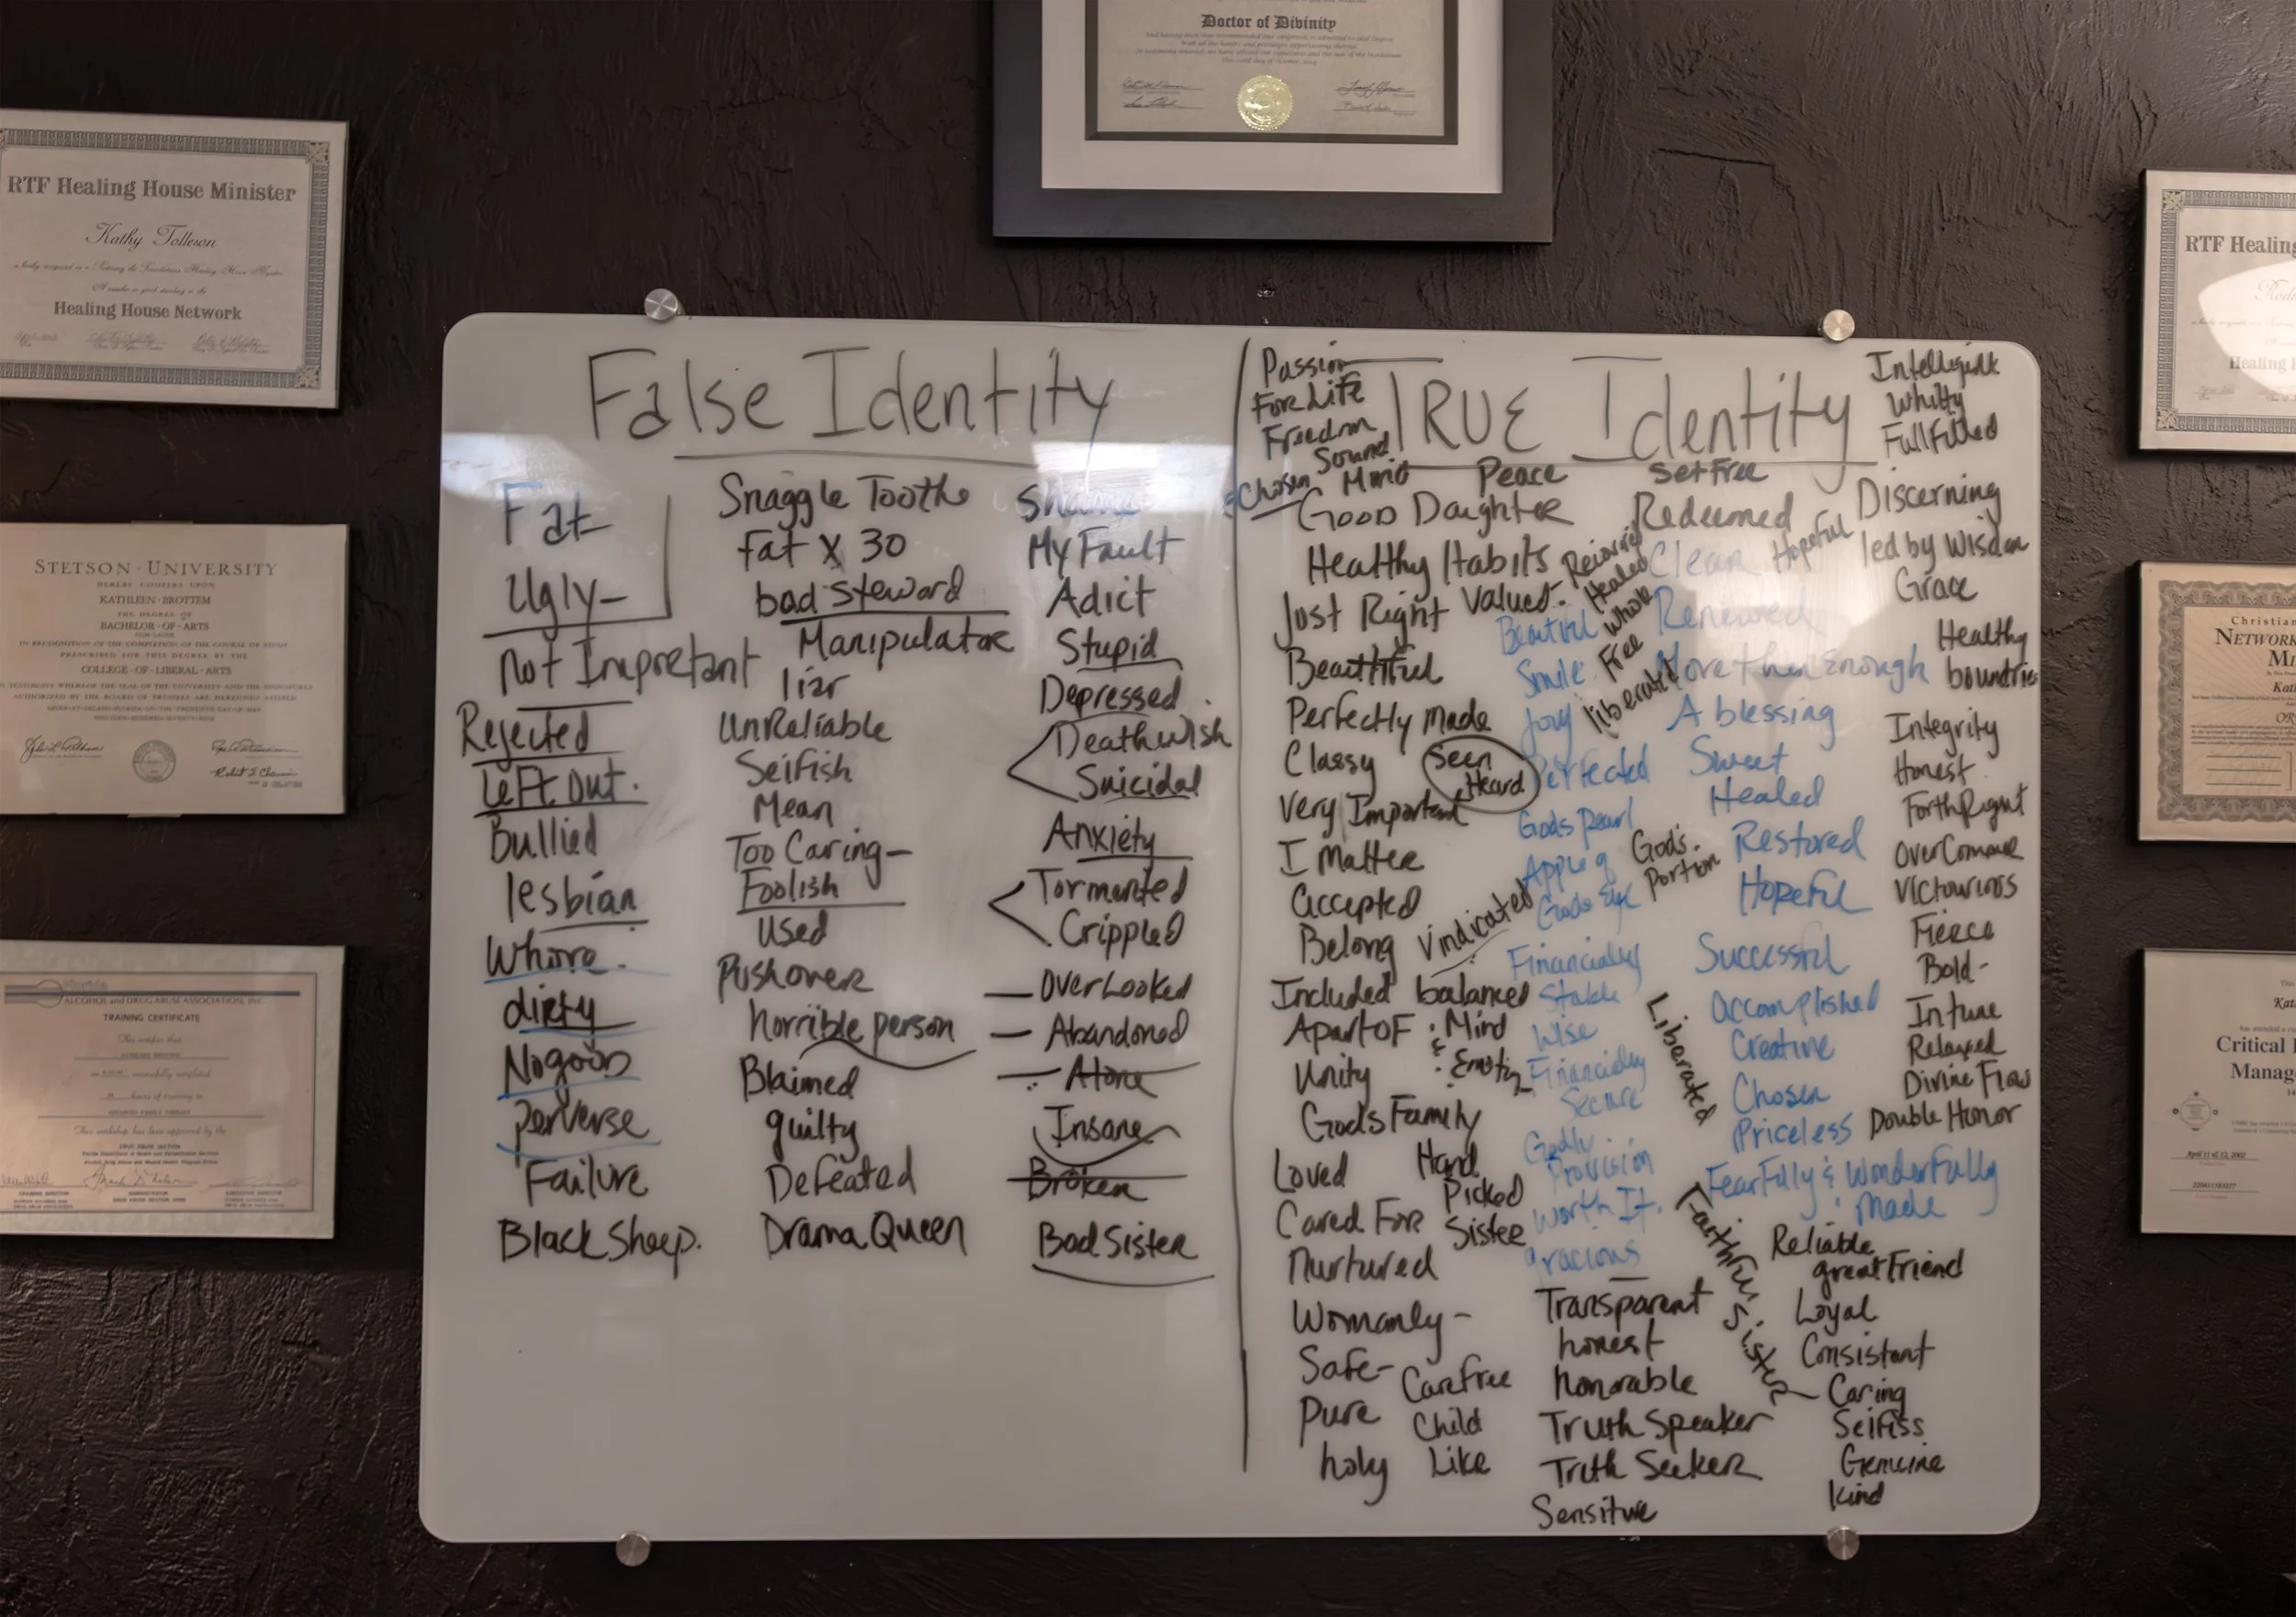 Doctor of Divinity
RTF Healing House Minister
Kathy Tolleson
Healing House Network
STETSON·UNIVERSITY
HEREBY CONFERS UPON
KATHLEEN·BROTTEM
THE DEGREE OF
BACHELOR·OF·ARTS
IN RECOGNITION OF THE COMPLETION OF THE COURSE OF STUDY
PRESCRIBED FOR THIS DEGREE BY THE
COLLEGE·OF·LIBERAL·ARTS
Florida
ALCOHOL and DRUG ABUSE ASSOCIATION, INC.
TRAINING CERTIFICATE
False Identity
Fat
Ugly
Not Impretant
Rejected
Left Out.
Bullied
lesbian
Whore.
dirty
No good
perverse
Failure
Black Sheep.
Snaggle Tooth
Fat X 30
bad steward
Manipulator
liar
UnReliable
Selfish
Mean
Too Caring—
Foolish
Used
Pushover
horrible person
Blaimed
guilty
Defeated
Drama Queen
Shame
My Fault
Adict
Stupid
Depressed
Deathwish
Suicidal
Anxiety
Tormented
Crippled
— OverLooked
— Abandoned
— Alone
Insane
Broken
Bad Sister
TRUE Identity
Passion
For Life
Freedom
Sound
Mind
Chosen
Peace
Set Free
Good Daughter
Healthy Habits
Just Right
Valued
Beautiful
Perfectly Made
Classy
Seen
Heard
Very Important
I Matter
Accepted
Belong
Vindicated
Included
Apart OF
Unity
balanced
Mind
&
Gods Family
Loved
Cared For
Nurtured
Womanly -
Safe -
Pure
holy
Hand
Picked
Sister
Carefree
Child
Like
Healed
Whole
Free
liberated
Beautiful
Smile
Joy
Perfected
Gods pearl
Apple of
Gods Eye
Gods
Portion
Financially
Stable
Wise
Financially
Secure
Godly
Provision
Worth It.
gracious
Transparent
honest
honorable
Truth Speaker
Truth Seeker
Sensitive
Redeemed
Clean
Hopeful
Renewed
More then Enough
A blessing
Sweet
Healed
Restored
Hopeful
Successful
Accomplished
Creative
Chosen
Priceless
Fearfully & Wonderfully
Made
Liberated
Faithful Sister
Reliable
great Friend
Loyal
Consistant
Caring
Selfiss
Genuine
Kind
Intelligint
Whitty
Fullfilled
Discerning
led by Wisdom
Grace
Healthy
boundries
Integrity
Honest
ForthRight
OverComer
Fierce
Bold-
Intune
Relaxed
Divine Flow
Double Honor
RTF Healing
Healing
Christian
NETWORK
Critical
Manage
April 11 & 12, 2002